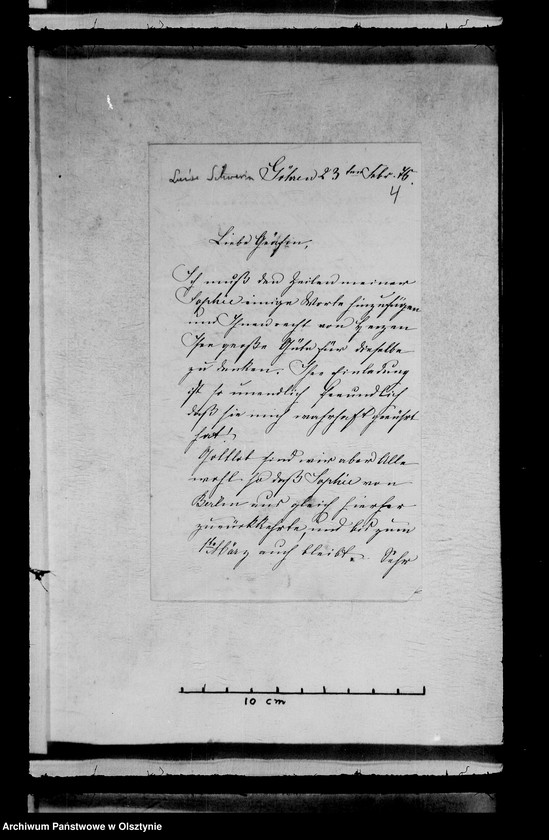 Luise Schwerin Göhren 23ten Febr. 76.
4
Liebe Gräfin,
Ich muß den Zeilen meiner
Sophie einige Worte hinzufügen
um Ihnen recht von Herzen
Ihre große Güte für dieselbe
zu danken. Ihre Einladung
ist so unendlich freundlich
daß sie mich wahrhaft gerührt
hat!
Gottlob sind wir aber Alle
wohl so daß Sophie von
Berlin aus gleich hierher
zurückkehrte, und bis zum
1ten März auch bleibt. Sehr
10 cm
Archiwum Państwowe w Olsztynie